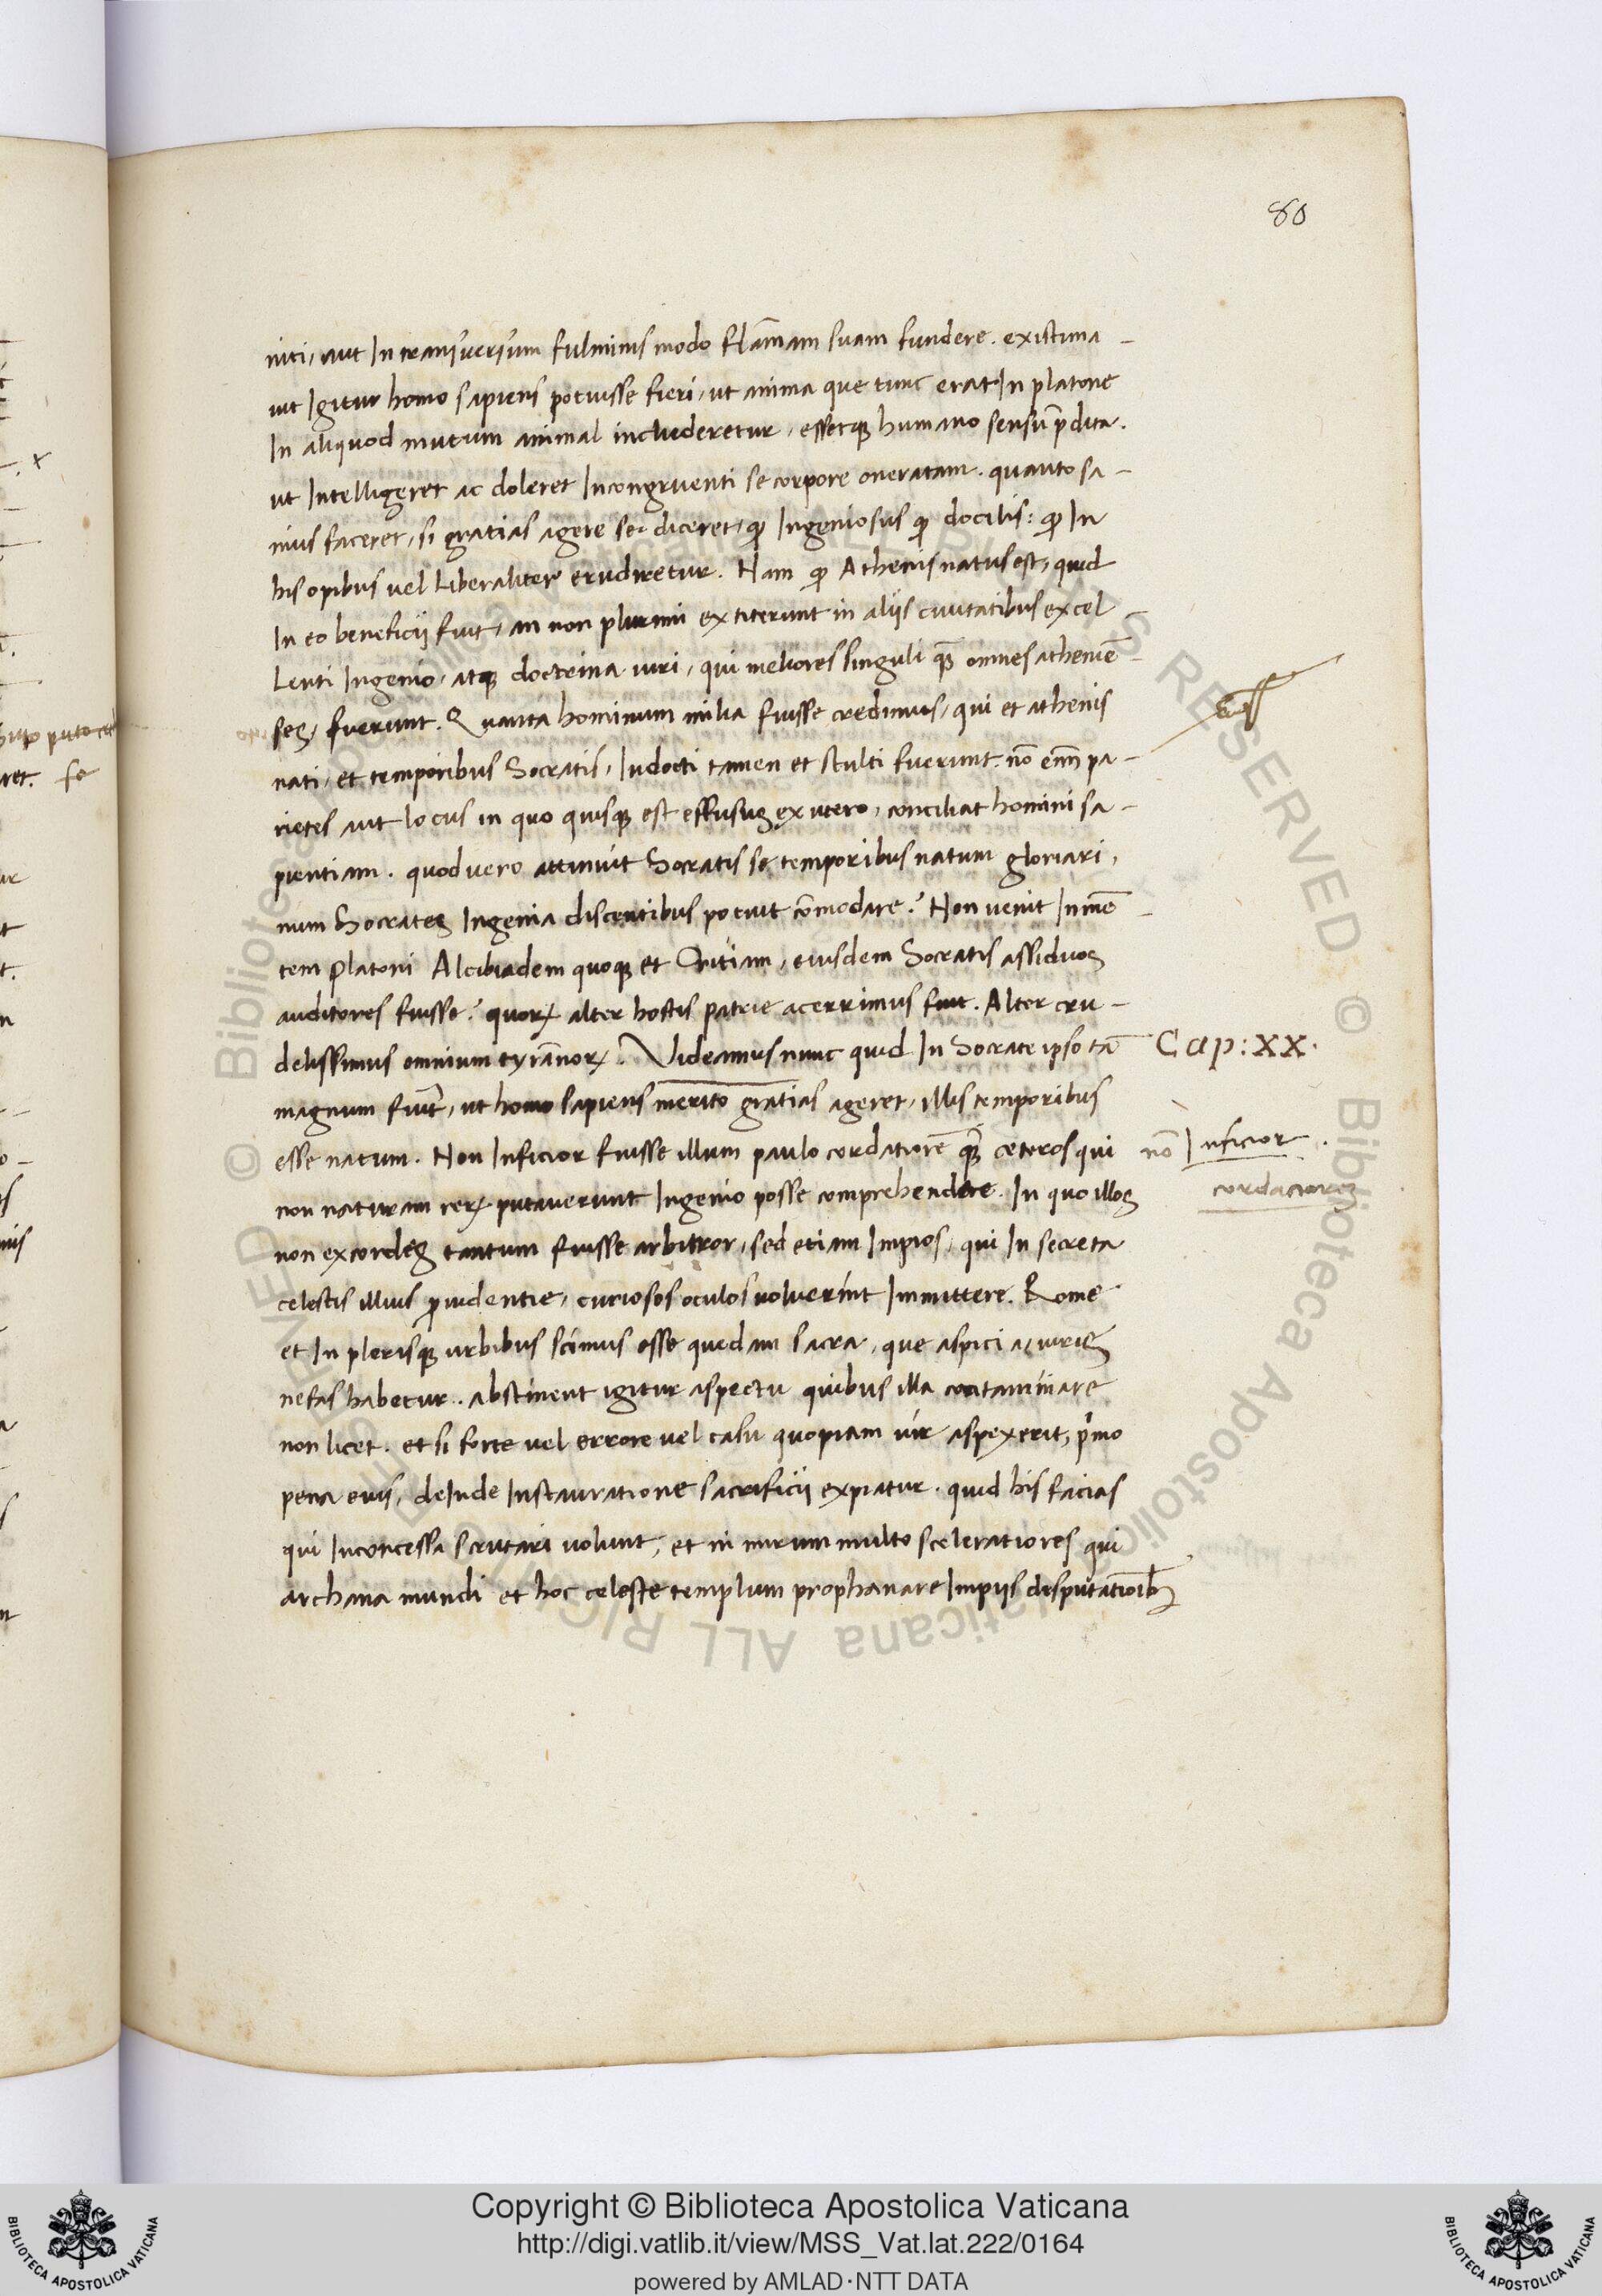 80
niti, aut In transversum fulminis modo flāmam suam fundere. existima-
uit Igitur homo sapiens potuisse fieri, ut anima que tunc erat In platone
In aliquod mutum animal includeretur, essetqꝫ humano sensu p̄dita.
ut Intelligeret ac doleret Incongruenti se corpore oneratam. quanto sa-
nius faceret, si gratias agere se diceret, ꝙ Ingeniosus ꝙ docilis: ꝙ In
his opibus vel Liberaliter erudiretur. Nam ꝙ Athenis natus est, quid
In eo beneficij fuit, an non plurimi extiterunt in aliis ciuitatibus excel
Lenti Ingenio, atqꝫ doctrina uiri, qui meliores singuli qꝫ̄ omnes atheniē-
ses, fuerunt. Quanta hominum milia fuisse credimus, qui et athenis
nati, et temporibus Socratis, Indocti tamen et stulti fuerunt. nō enim pa-
rietes aut locus in quo quisqꝫ est effusus ex utero, conciliat homini sa-
pientiam. quod uero attinuit Socratis se temporibus natum gloriari,
num Socrates Ingenia discentibus potuit cōmodare? Non uenit In mē-
tem platoni Alcibiadem quoqꝫ et Critiam, eiusdem Socratis assiduos
auditores fuisse? quoꝝ alter hostis patrie acerrimus fuit. Alter cru-
delissimus omnium tyrānoꝝ. Videamus nunc quid In Socrate ipso tā
Cap: XX.
magnum fuit, ut homo sapiens merito gratias ageret, illis temporibus
esse natum. Non Inficior fuisse illum paulo cordatiorē qꝫ̄ ceteros qui
nō Inficior.
non naturam reꝝ putauerunt Ingenio posse comprehendere. In quo illos
cordatiores
non excordes tantum fuisse arbitror, sed etiam Impios, qui In secreta
celestis illius ꝓuidentie, curiosos oculos uoluerint Immittere. Rome
et In plerisqꝫ urbibus scimus esse quedam sacra, que aspici a uiris
nefas habetur. abstinent igitur aspectu quibus illa contaminare
non licet. et si forte vel errore vel casu quopiam uir aspexerit, p̄mo
pena eius, deInde Instauratione sacrificii expiatur. quid his facias
qui Inconcessa scrutari uolunt, et ni mirum multo sceleratiores qui
archana mundi et hoc celeste templum prophanare Impiis disputatiōibꝫ
Copyright © Biblioteca Apostolica Vaticana
http://digi.vatlib.it/view/MSS_Vat.lat.222/0164
powered by AMLAD·NTT DATA
BIBLIOTECA APOSTOLICA VATICANA
BIBLIOTECA APOSTOLICA VATICANA